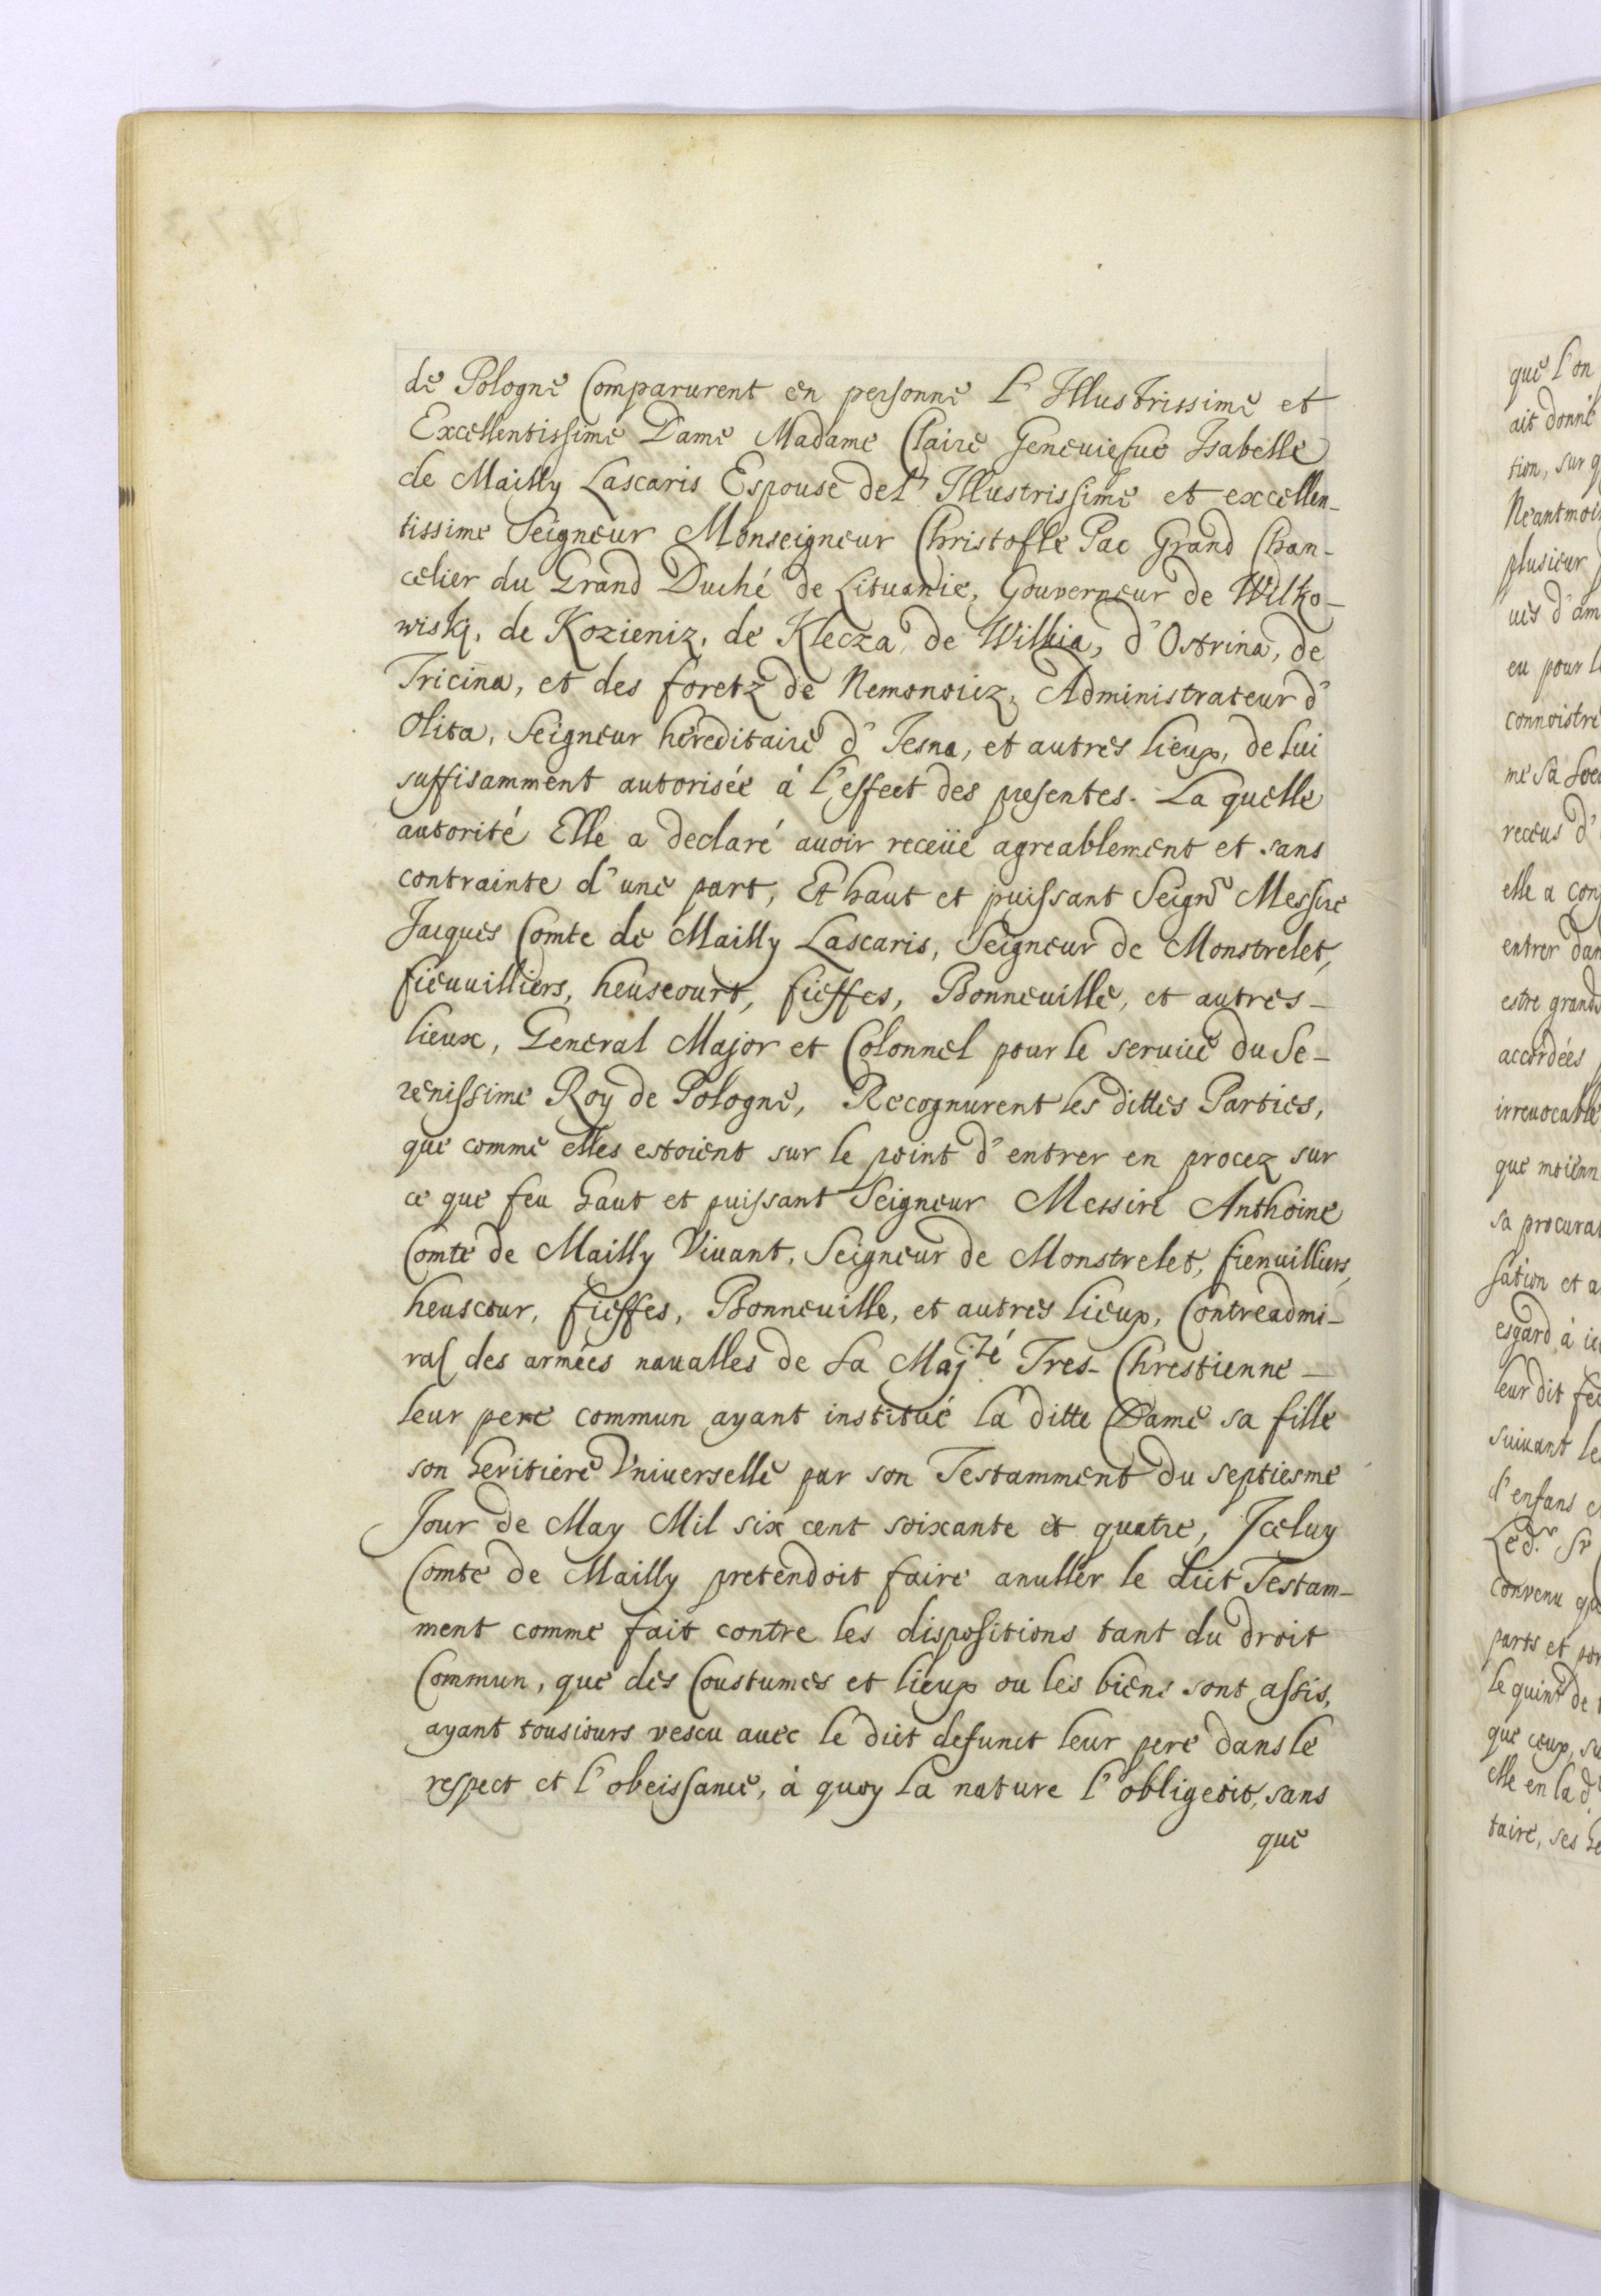 de Pologne Comparurent en personne L'Illustrissime et
Excellentissime Dame Madame Claire Geneuiefue Isabelle
de Mailly Lascaris Espouse de l'Illustrissime et excellen-
tissime Seigneur Monseigneur Christofle Pac Grand Chan-
celier du Grand Duché de Lituanie, Gouverneur de Wilko-
wiski, de Kozieniz, de Klecza, de Wilkia, d'Ostrina, de
Tricina, et des foretz de Nemonoiiz, Administrateur d'
Olita, Seigneur hereditaire d'Iesna, et autres lieux, de lui
suffisamment autorisée à l'effect des presentes. La quelle
autorité Elle a declaré auoir receüe agreablement et sans
contrainte d'une part, Et haut et puissant Seigr Messire
Jacques Comte de Mailly Lascaris, Seigneur de Monstrelet,
fieuuilliers, heuscourt, fieffes, Bonneuille, et autres-
lieux, General Major et Colonnel pour le seruice du Se-
renissime Roy de Pologne, Recognurent les dittes Parties,
que comme elles estoient sur le point d'entrer en procez sur
ce que feu haut et puissant Seigneur Messire Anthoine
Comte de Mailly Viuant, Seigneur de Monstrelet, fienuilliers,
heuscour, fieffes, Bonneuille, et autres lieux, Contreadmi-
ral des armées naualles de Sa Maj.té Tres-Chrestienne-
leur pere commun ayant institué la ditte Dame sa fille
son heritiere Vniuerselle par son Testamment du septiesme
Jour de May Mil six cent soixante et quatre, Iceluy
Comte de Mailly pretendoit faire anuller le dict Testam-
ment comme fait contre les dispositions tant du droit
Commun, que des Coustumes et lieux ou les biens sont assis,
ayant tousiours vescu auec le dict defunct leur pere dans le
respect et l'obeissance, à quoy la nature l'obligeoit, sans
que
que l'on
ait donné
tion, sur q
Neantmoi
plusieur
ues d'am
eu pour l
connoistre
me sa Soe
receus d'
elle a con
entrer dan
estre grand
accordées
irreuocable
que moienn
sa procurat
sation et a
esgard à ic
leur dit fe
suiuant le
d'enfans e
Led.r Sr
convenu que
parts et por
le quint de
que ceux, su
elle en la d.
taire, ses he